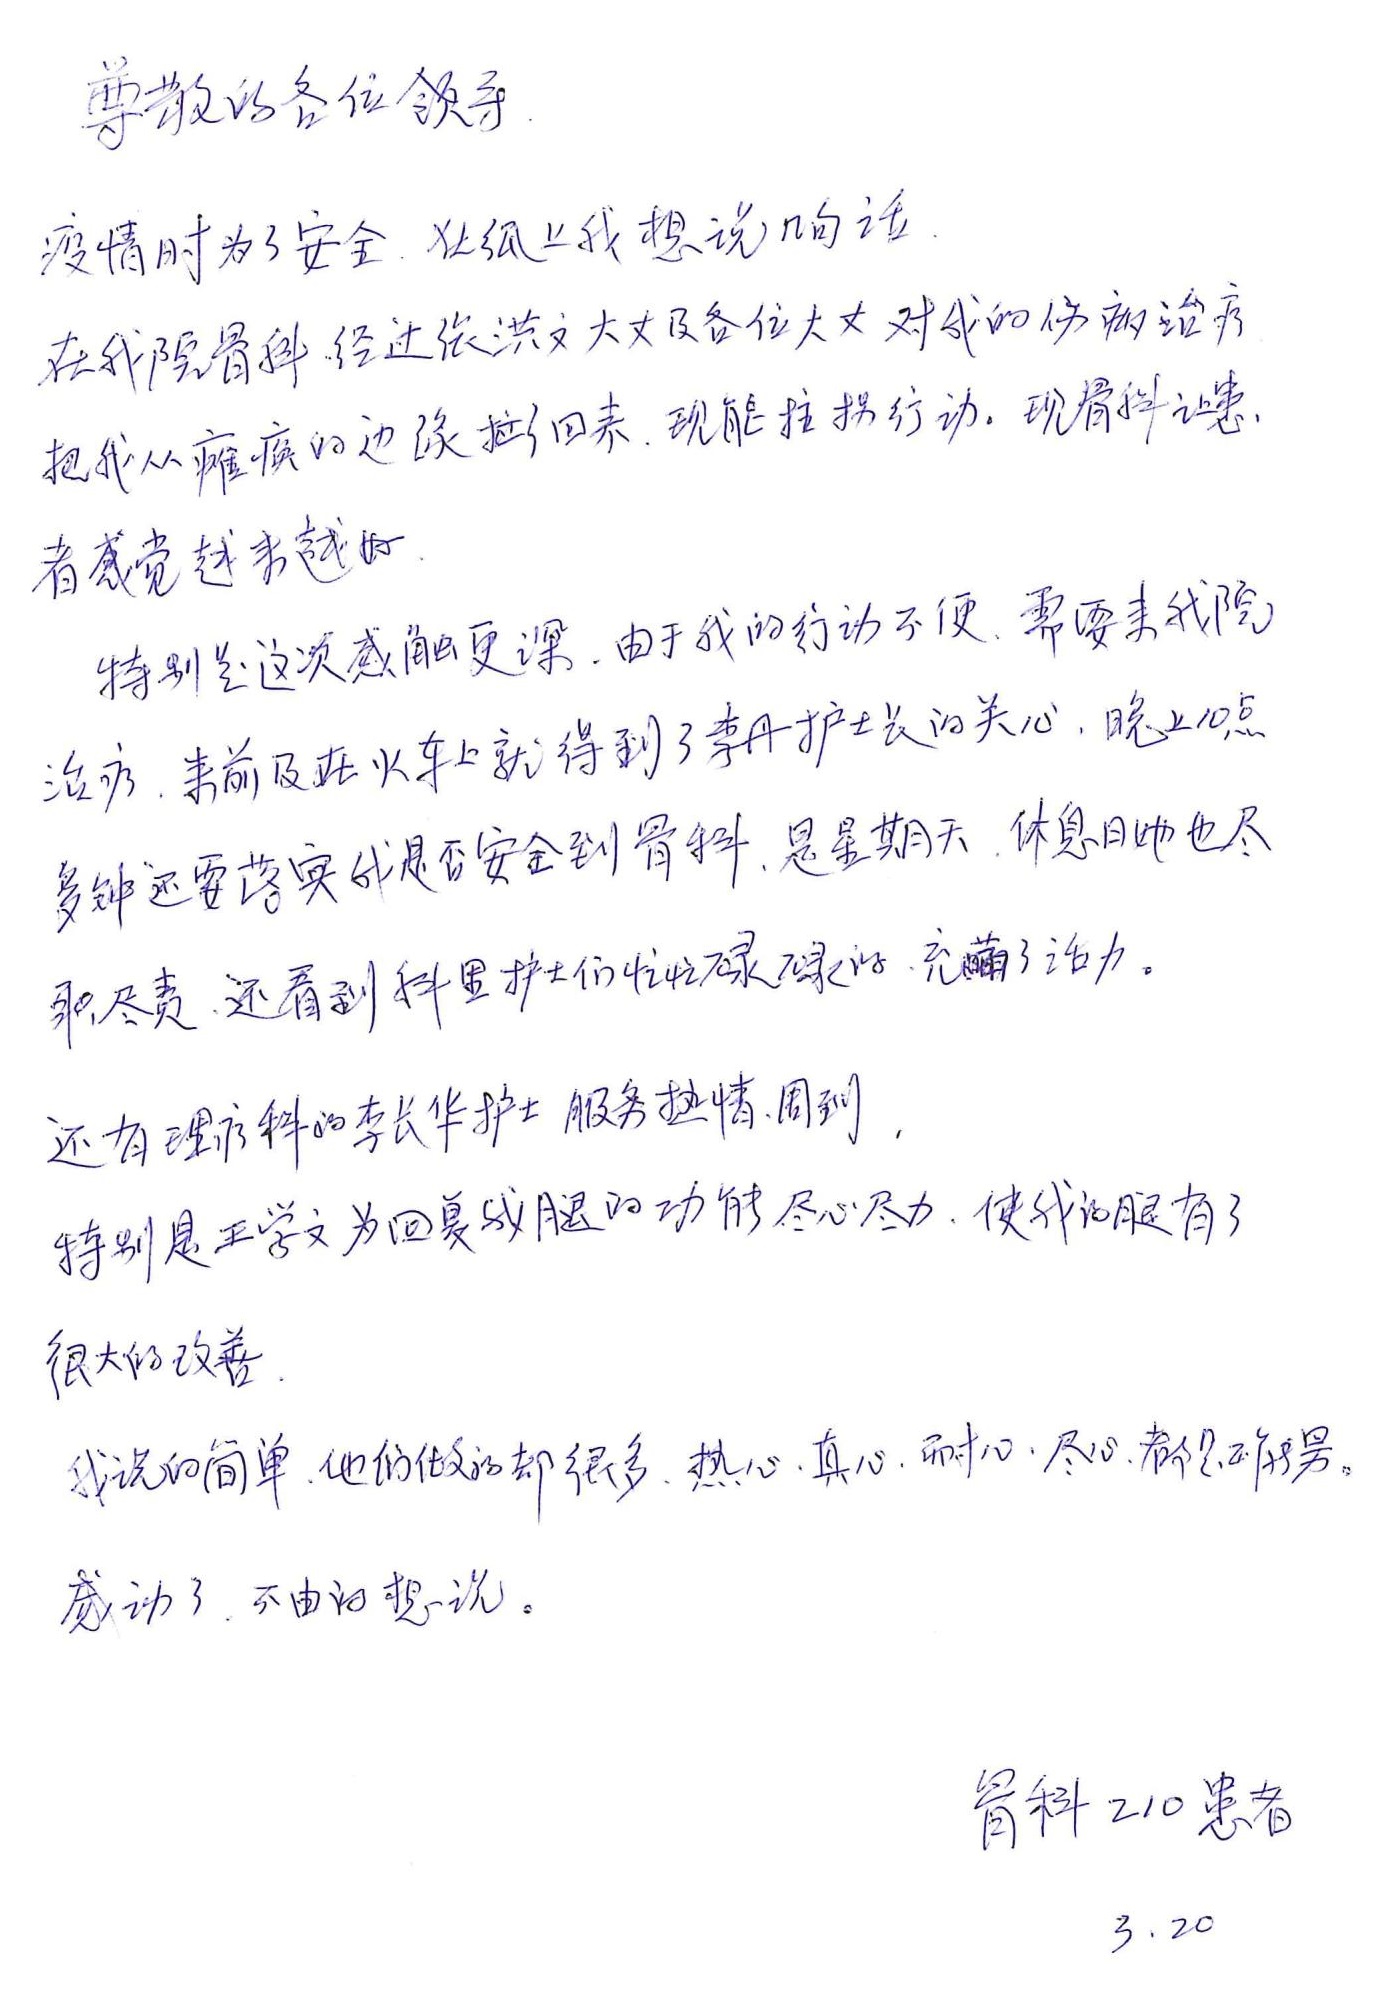 尊敬的各位领导.
疫情时为了安全.在纸上我想说几句话.
在我院骨科.经过张洪文大丈及各位大丈对我的伤病治疗
把我从瘫痪的边缘拉了回来.现能拄拐行动。现骨科让患
者感觉越来越好.
特别是这次感触更深.由于我的行动不便、需要来我院
治疗.来前及在火车上就得到了李丹护士长的关心.晚上10点
多钟还要落实我是否安全到骨科、是星期天.休息日她也尽
职尽责.还看到科里护士们忙忙碌碌的.充满了活力。
还有理疗科的李长华护士服务热情、周到,
特别是王学文为回复我腿的功能尽心尽力.使我的腿有了
很大的改善.
我说的简单.他们做的却很多.热心.真心.耐心.尽心.都
感动了.不由的想说。
骨科210患者
3.20